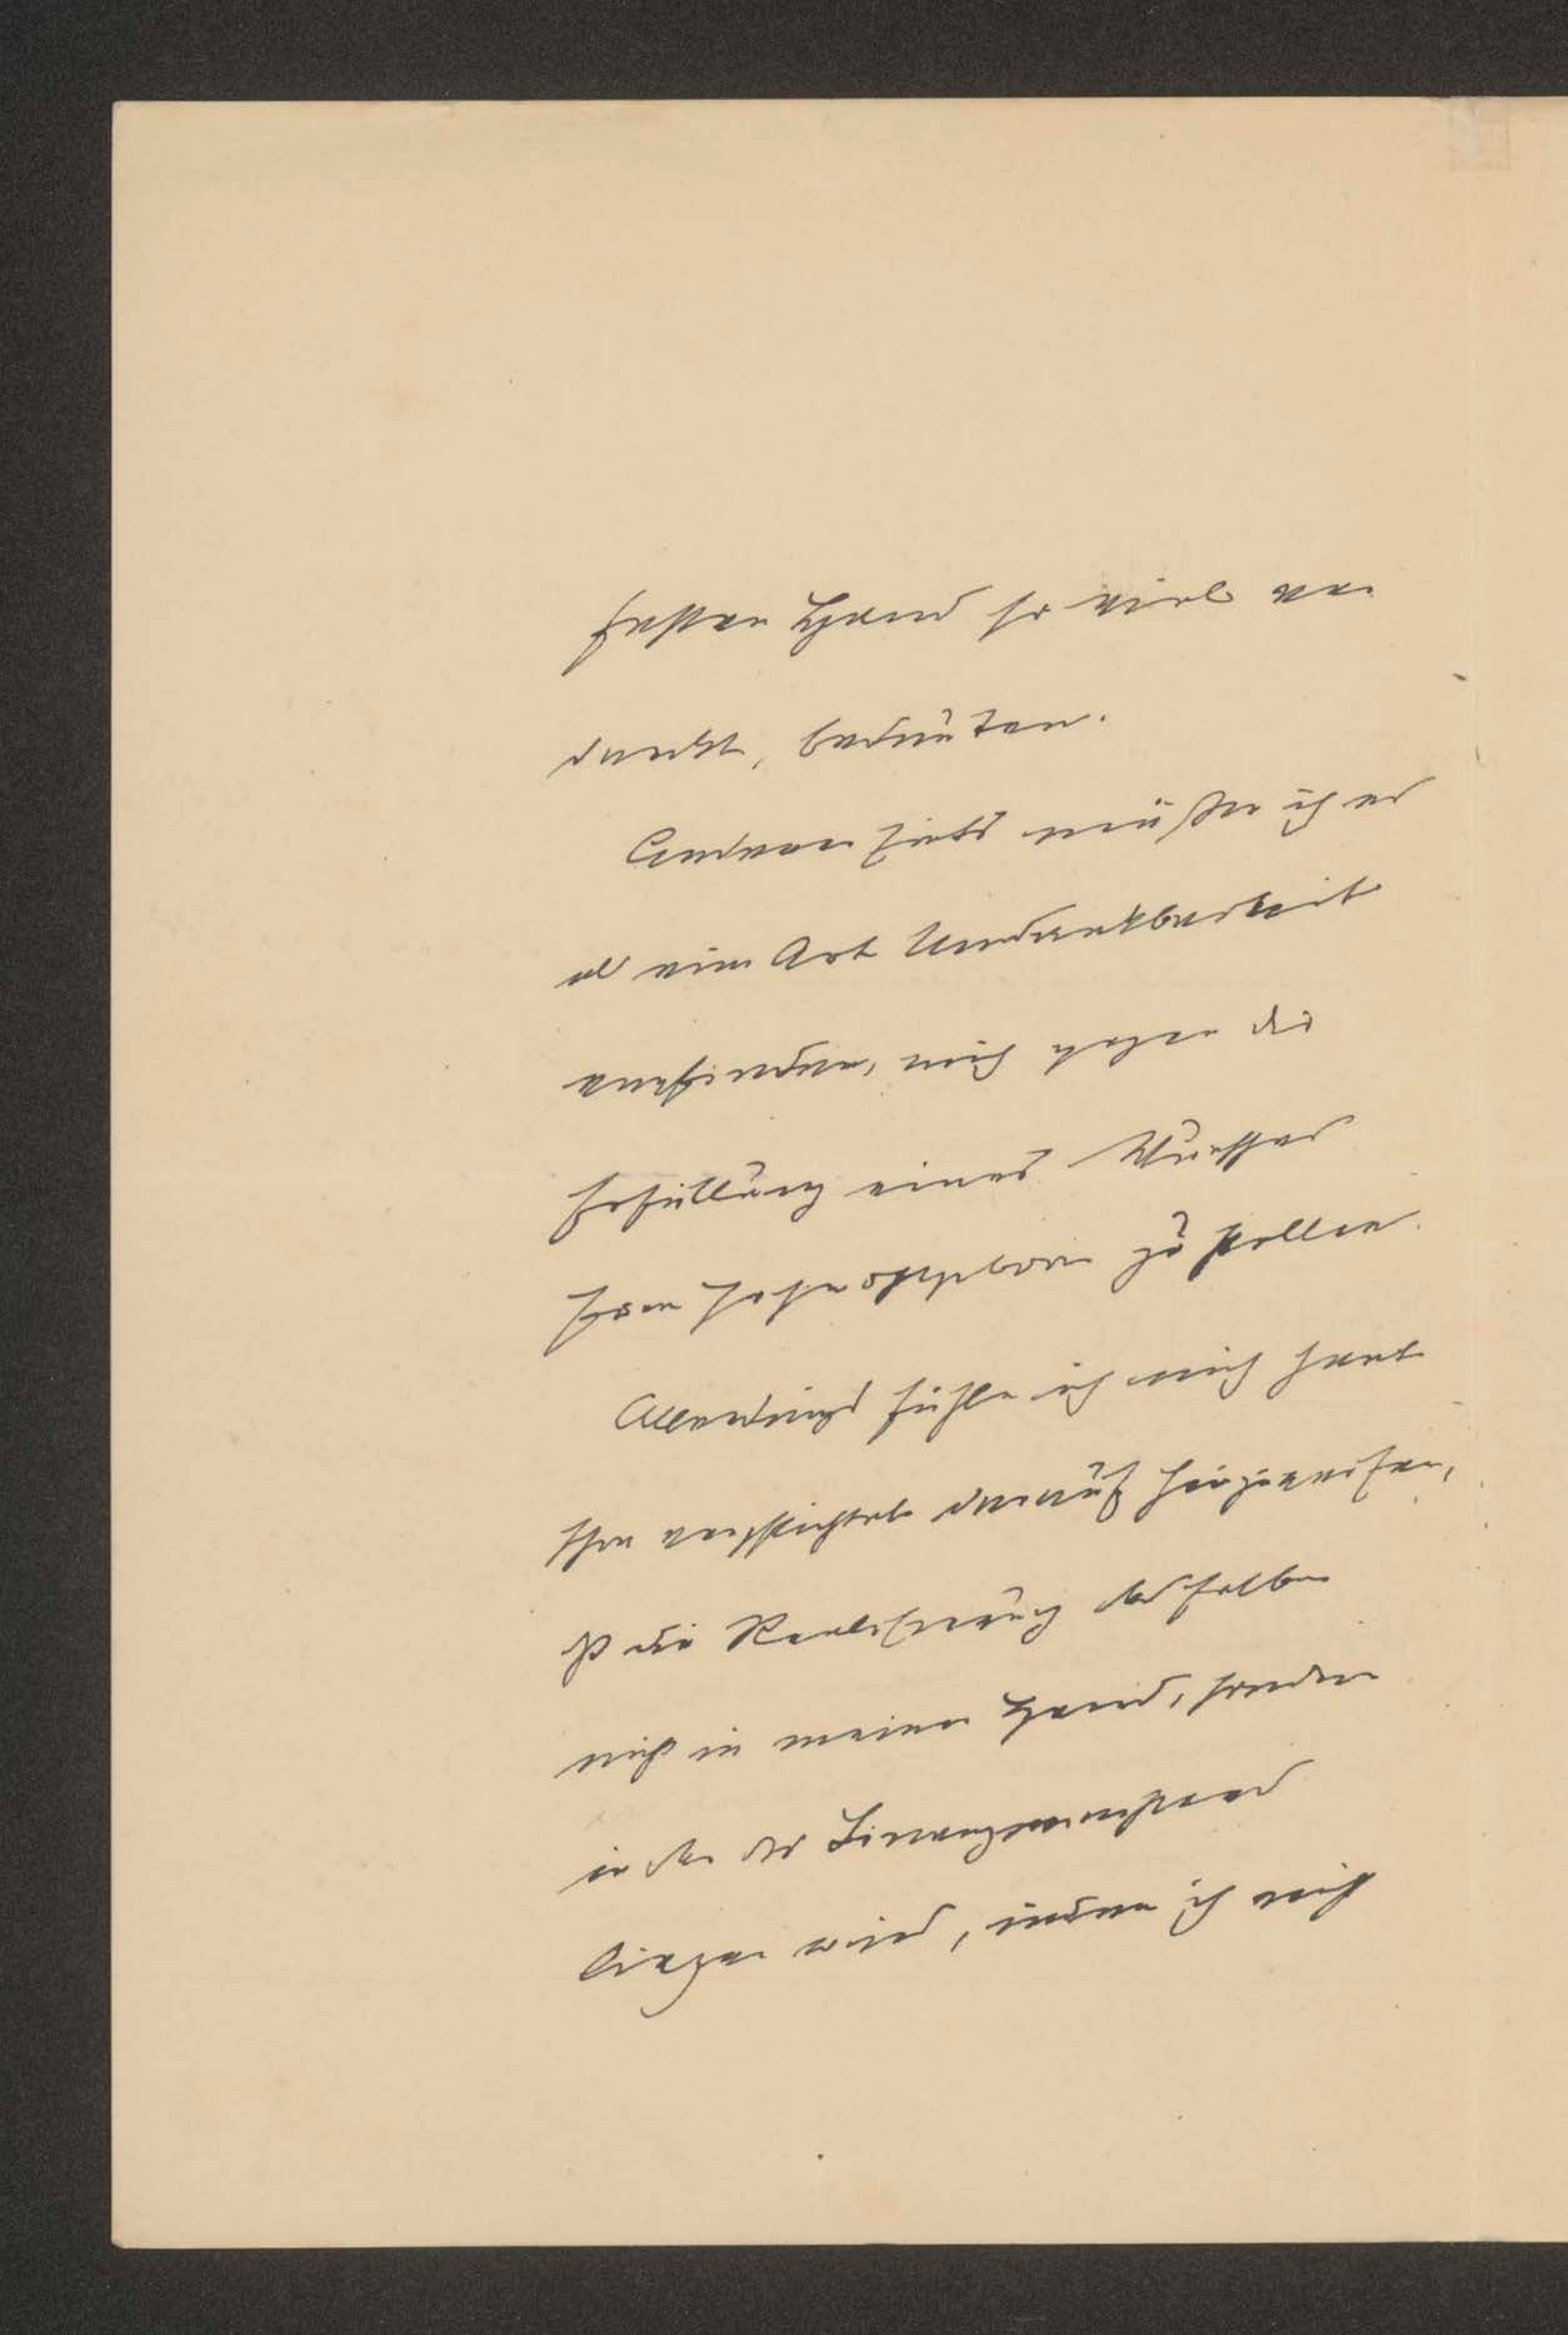 festen Hand so viel ver
dankt, bedeuten.
Andererseits müßte ich es
als eine Art Undankbarkeit
empfinden, mich gegen die
Erfüllung eines Wunsches
zu stellen.
Allerdings fühle ich mich heute
schon verpflichtet darauf hinzuweisen,
daß die Realisierung desselben
nicht in meiner Hand, sondern
in der des Finanzmannes
liegen wird, indem ich mich